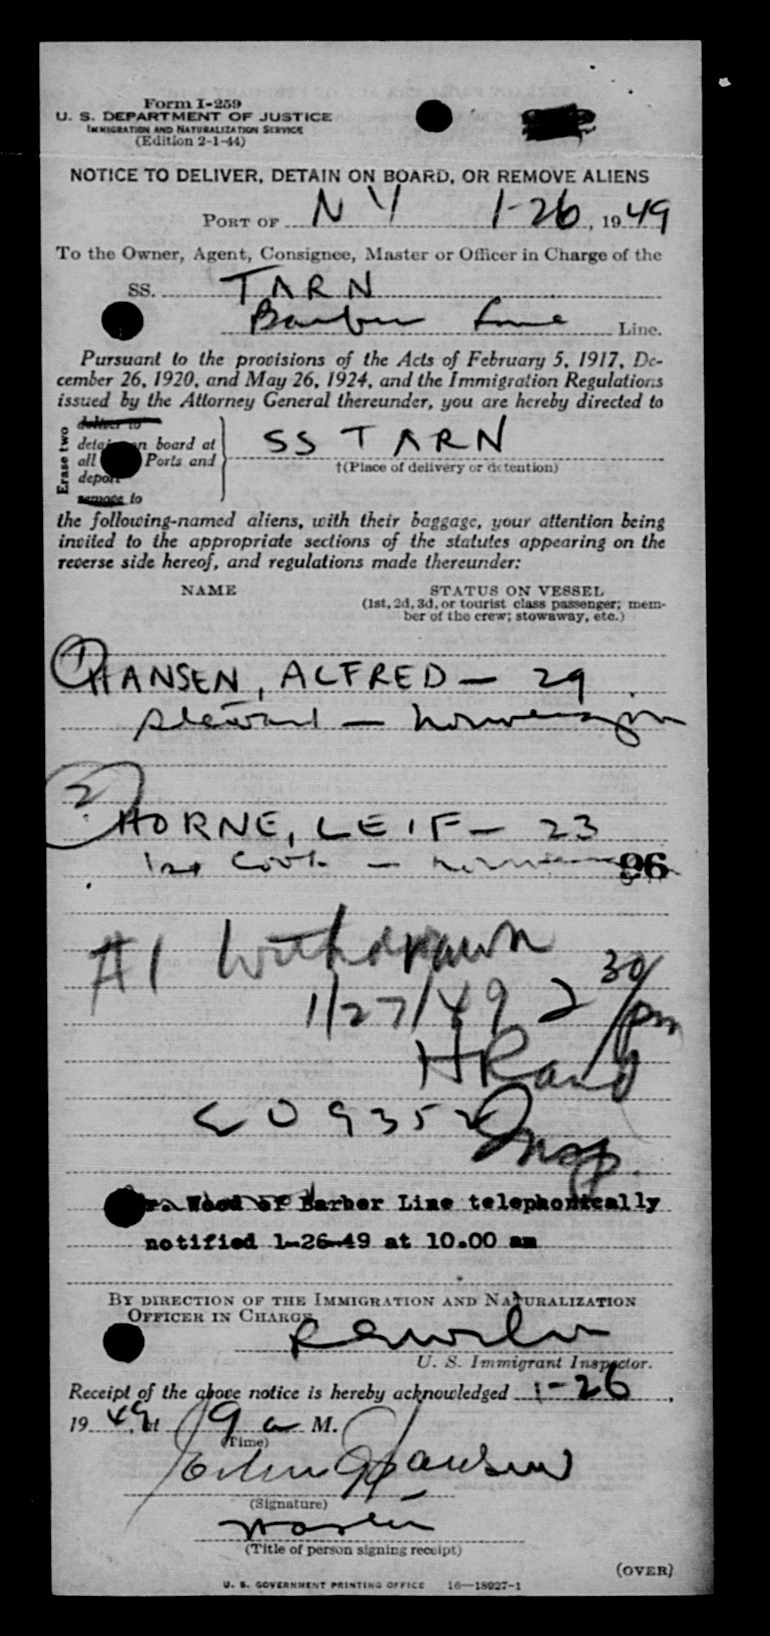 Form I-259
U. S. DEPARTMENT OF JUSTICE
IMMIGRATION AND NATURALIZATION SERVICE
(Edition 2-1-44)
NOTICE TO DELIVER, DETAIN ON BOARD, OR REMOVE ALIENS
PORT OF N Y 1-26, 1949
To the Owner, Agent, Consignee, Master or Officer in Charge of the
SS. TARN
Barber Line Line.
Pursuant to the provisions of the Acts of February 5, 1917, De-
cember 26, 1920, and May 26, 1924, and the Immigration Regulations
issued by the Attorney General thereunder, you are hereby directed to
Erase two
deliver to
detain on board at
all Ports and
deport
remove to
SS TARN
†(Place of delivery or detention)
the following-named aliens, with their baggage, your attention being
invited to the appropriate sections of the statutes appearing on the
reverse side hereof, and regulations made thereunder:
NAME STATUS ON VESSEL
(1st, 2d, 3d, or tourist class passenger; mem-
ber of the crew; stowaway, etc.)
1 HANSEN, ALFRED - 29
Steward - Norwegian
2 HORNE, LEIF - 23
1st Cook - Norwegian
96
#1 Withdrawn
1/27/49 2 30/pm
H Rand
Insp.
Wood of Barber Line telephonically
notified 1-26-49 at 10.00 am
BY DIRECTION OF THE IMMIGRATION AND NATURALIZATION
OFFICER IN CHARGE
U. S. Immigrant Inspector.
Receipt of the above notice is hereby acknowledged 1-26,
1949, at 9 a M.
(Time)
(Signature)
Master
(Title of person signing receipt)
(OVER)
U. S. GOVERNMENT PRINTING OFFICE 16—18927-1